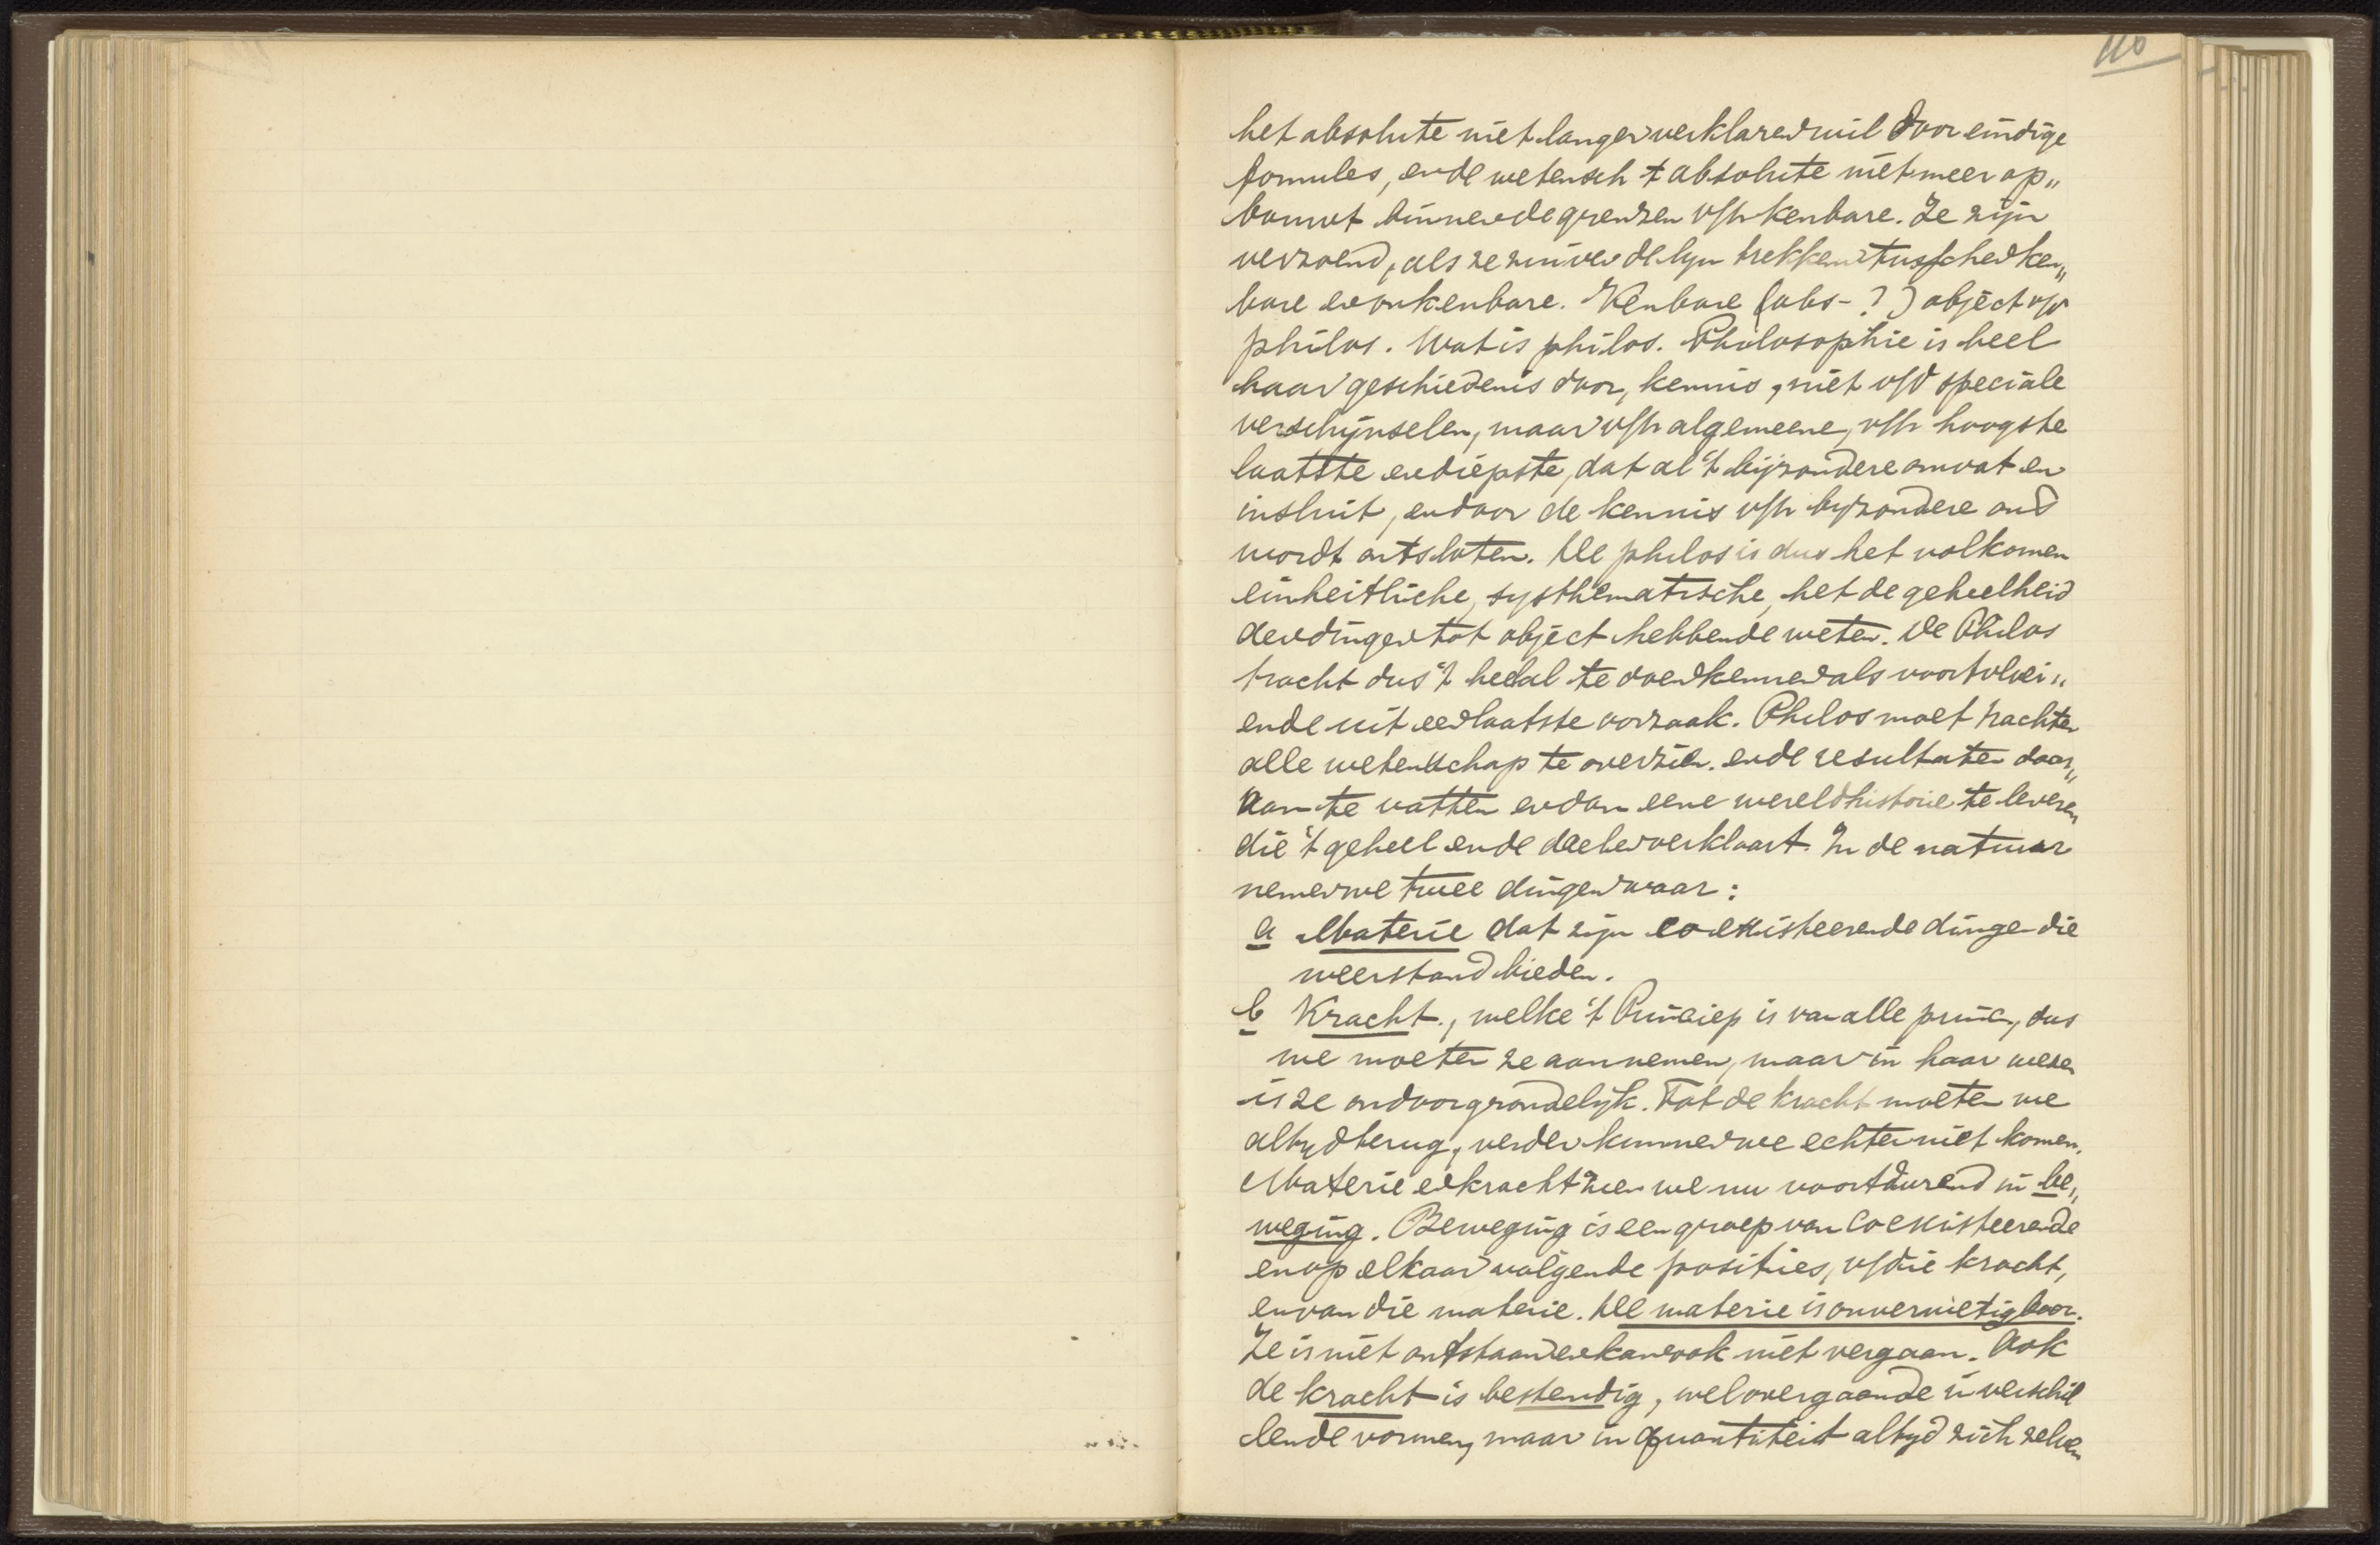 110
het absolute niet langer verklaren wil door eindige
formules, en de wetensch 't absolute niet meer op„
bouwt binnen de grenzen v/h kenbare. Ze zijn
verzoend, als ze zuiver de lijn trekken tusschen ken„
bare en onkenbare. Kenbare (abs-?) object v/d
philos. Wat is philos. Philosophie is heel
haar geschiedenis door, kennis, niet v/d speciale
verschijnselen, maar v/h algemeene, v/h hoogste
laatste en diepste, dat al 't bijzondere omvat en
insluit, en door de kennis v/h bijzondere ons
wordt ontsloten. De philos is dus het volkomen
einheitliche, systhematische, het de geheelheid
der dingen tot object hebbende weten. De Philos
tracht dus 't heelal te doen kennen als voortvloei„
ende uit een laatste oorzaak. Philos moet trachten
alle wetenschap te overzien en de resultaten daar„
van te vatten en dan eene wereldhistorie te leveren
die 't geheel en de deelen verklaart. In de natuur
nemen we twee dingen waar:
a Materie dat zijn coexisteerende dingen die
weerstand bieden.
b Kracht, welke 't Princiep is van alle princ, dus
we moeten ze aannemen, maar in haar wezen
is ze ondoorgrondelijk. Tot de kracht moeten we
altyd terug, verder kunnen we echter niet komen.
Materie en kracht zien we nu voortdurend in be„
weging. Beweging is een groep van coexisteerende
en op elkaar volgende posities, v/die kracht,
en van die materie. De materie is onvernietigbaar.
Ze is niet ontstaan en kan ook niet vergaan. Ook
de kracht is bestendig, wel overgaande in verschil
lende vormen, maar in quantiteit altyd zich zelven